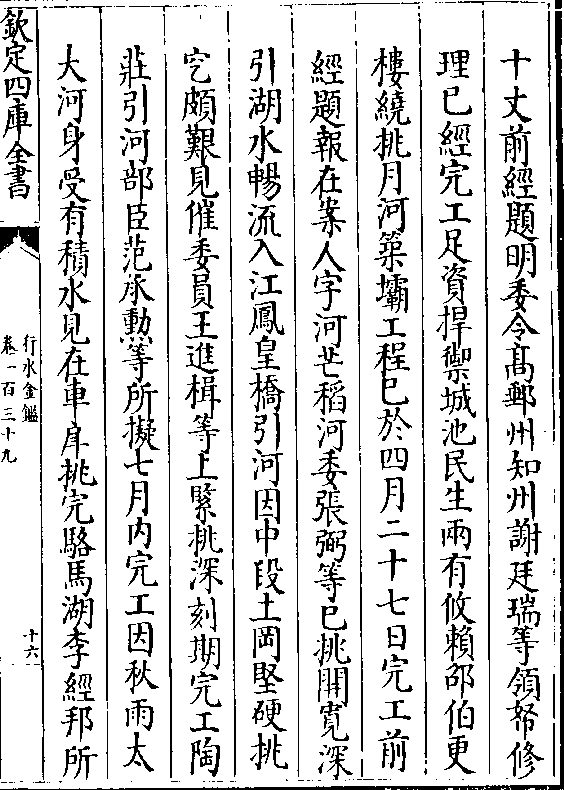 十丈前經題明委令髙郵州知州謝廷瑞等領帑修
理已經完工足資捍禦城池民生兩有攸頼邵伯更
樓繞挑月河築壩工程已於四月二十七日完工前
經題報在案人字河芒稻河委張弼等已挑開寛深
引湖水暢流入江鳳皇橋引河因中段土岡堅硬挑
挖頗艱見催委員王進楫等上緊挑深刻期完工陶
莊引河部臣范承勲等所擬七月内完工因秋雨太
大河身受有積水見在車戽挑完駱馬湖李經邦所
欽定四庫全書
行水金鑑
卷一百三十九
十六